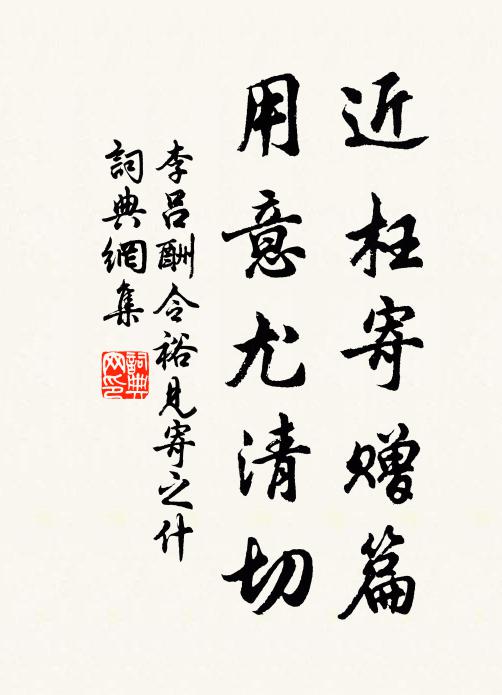 近枉寄赠篇
用意尤清切
李吕酬令裕見寄之什
詞典網集
詞典网印